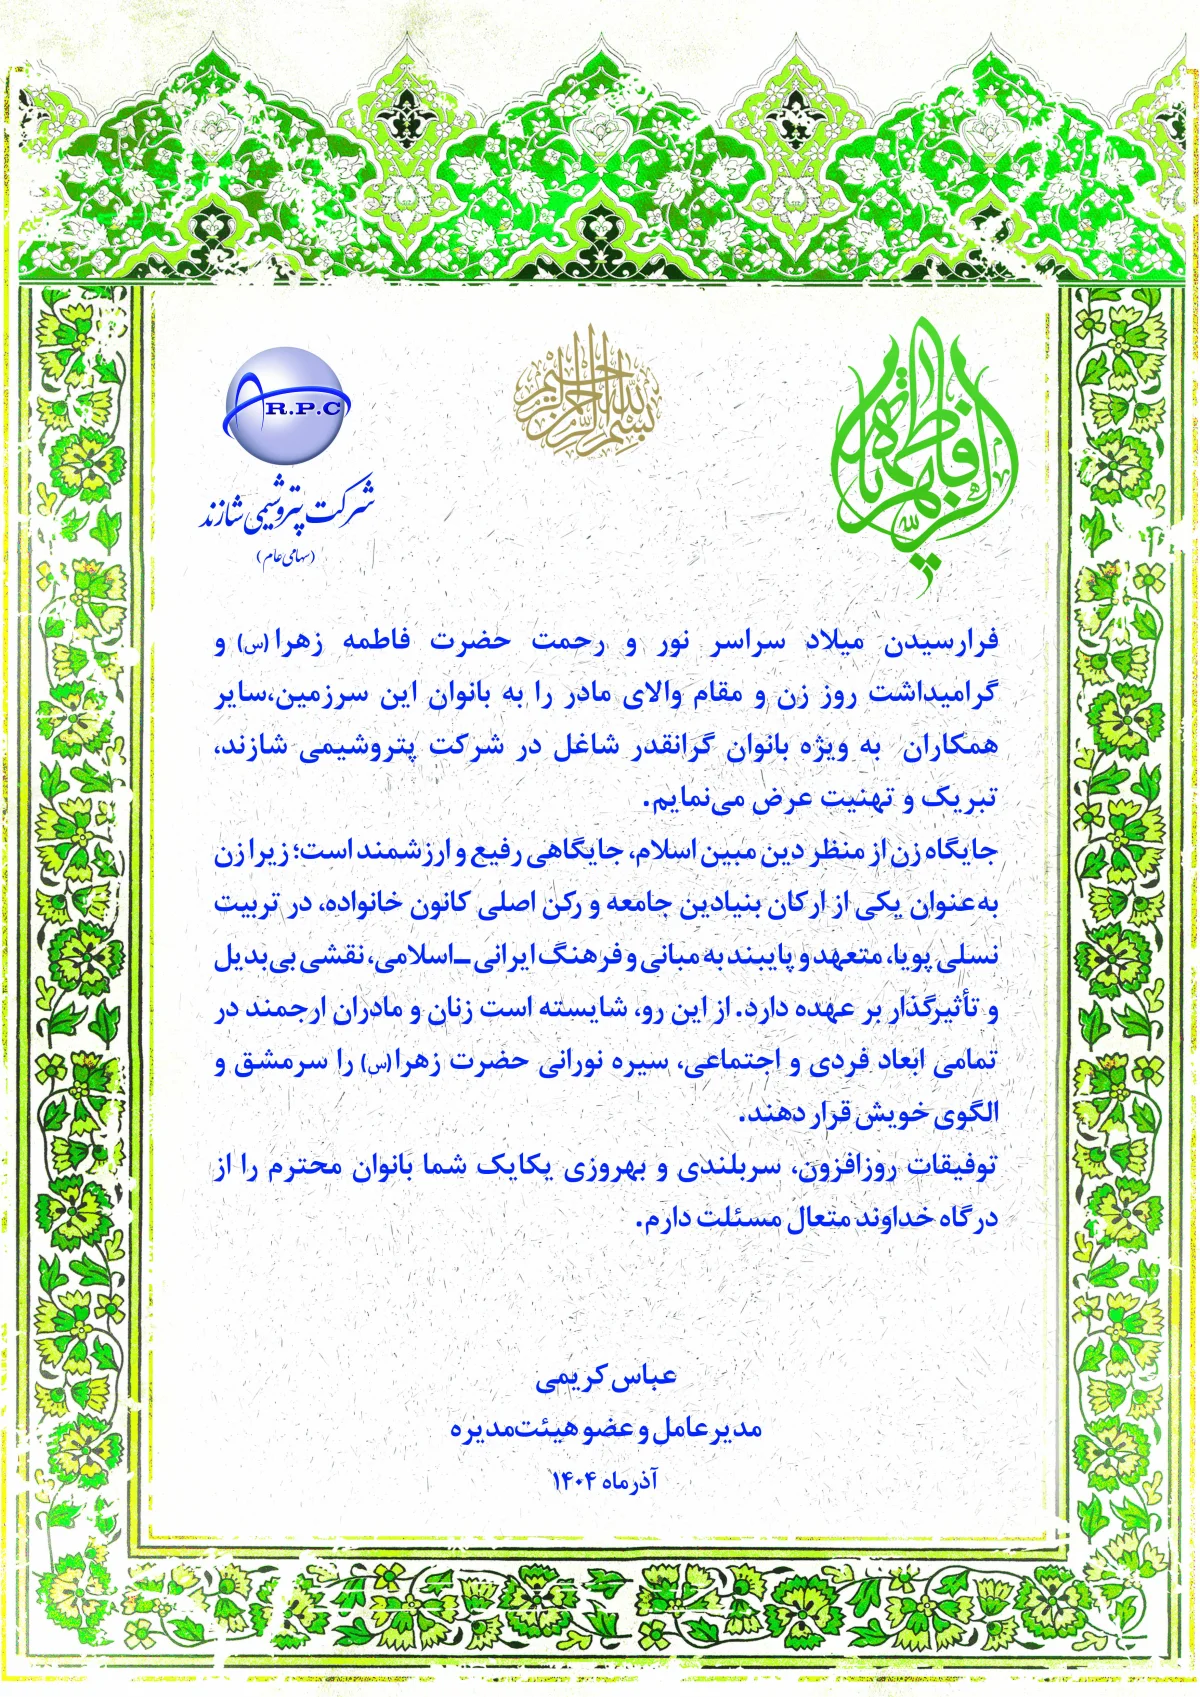 فاطمة الزهراء
بسم الله الرحمن الرحیم
A.R.P.C
شرکت پتروشیمی شازند
(سهامی عام)
فرارسیدن میلاد سراسر نور و رحمت حضرت فاطمه زهرا(س) و
گرامیداشت روز زن و مقام والای مادر را به بانوان این سرزمین،سایر
همکاران به ویژه بانوان گرانقدر شاغل در شرکت پتروشیمی شازند،
تبریک و تهنیت عرض می‌نمایم.
جایگاه زن از منظر دین مبین اسلام، جایگاهی رفیع و ارزشمند است؛ زیرا زن
به‌عنوان یکی از ارکان بنیادین جامعه و رکن اصلی کانون خانواده، در تربیت
نسلی پویا، متعهد و پایبند به مبانی و فرهنگ ایرانی ـ اسلامی، نقشی بی‌بدیل
و تأثیرگذار بر عهده دارد. از این رو، شایسته است زنان و مادران ارجمند در
تمامی ابعاد فردی و اجتماعی، سیره نورانی حضرت زهرا(س) را سرمشق و
الگوی خویش قرار دهند.
توفیقات روزافزون، سربلندی و بهروزی یکایک شما بانوان محترم را از
درگاه خداوند متعال مسئلت دارم.
عباس کریمی
مدیرعامل و عضو هیئت‌مدیره
آذرماه ۱۴۰۴